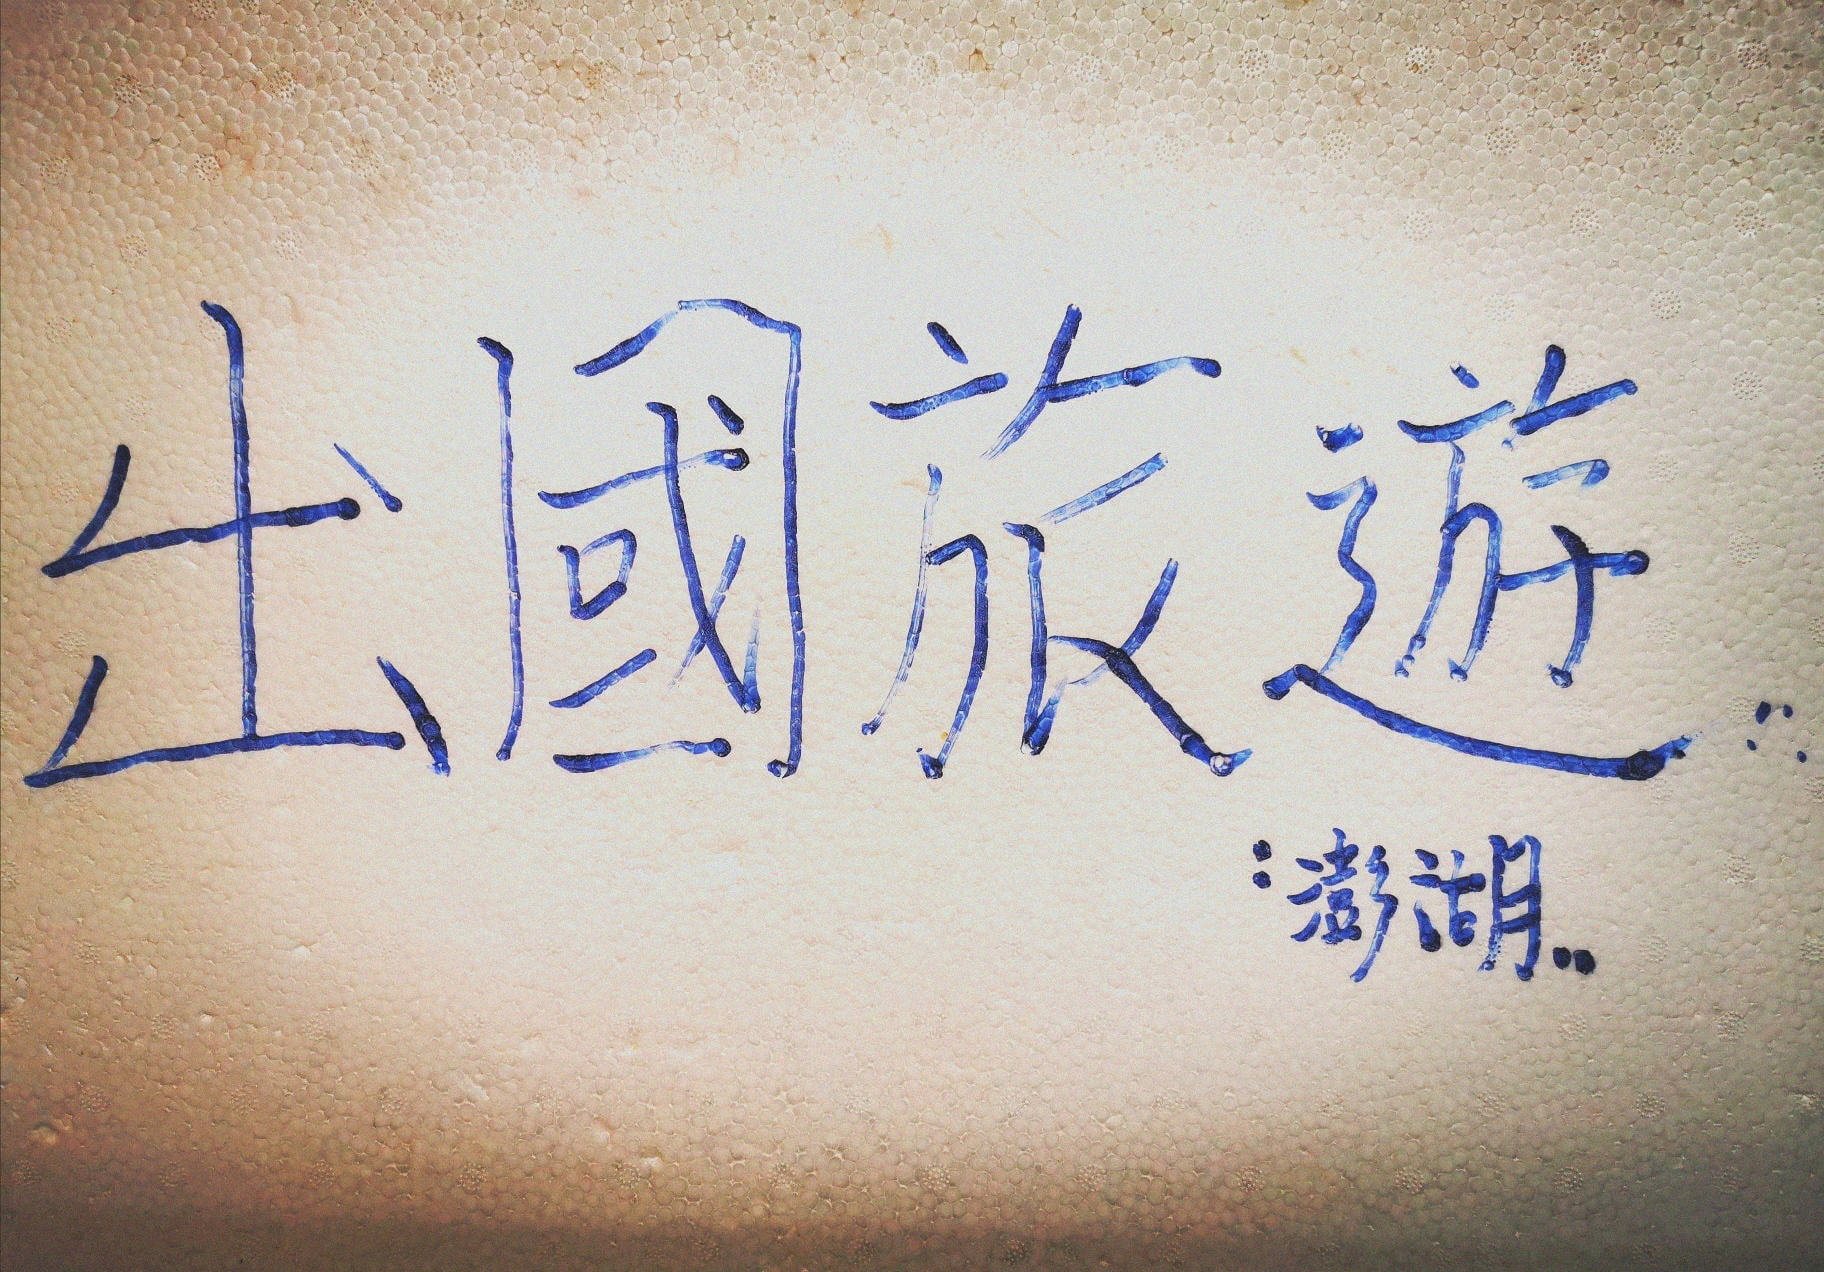 出國旅遊::
:澎湖..